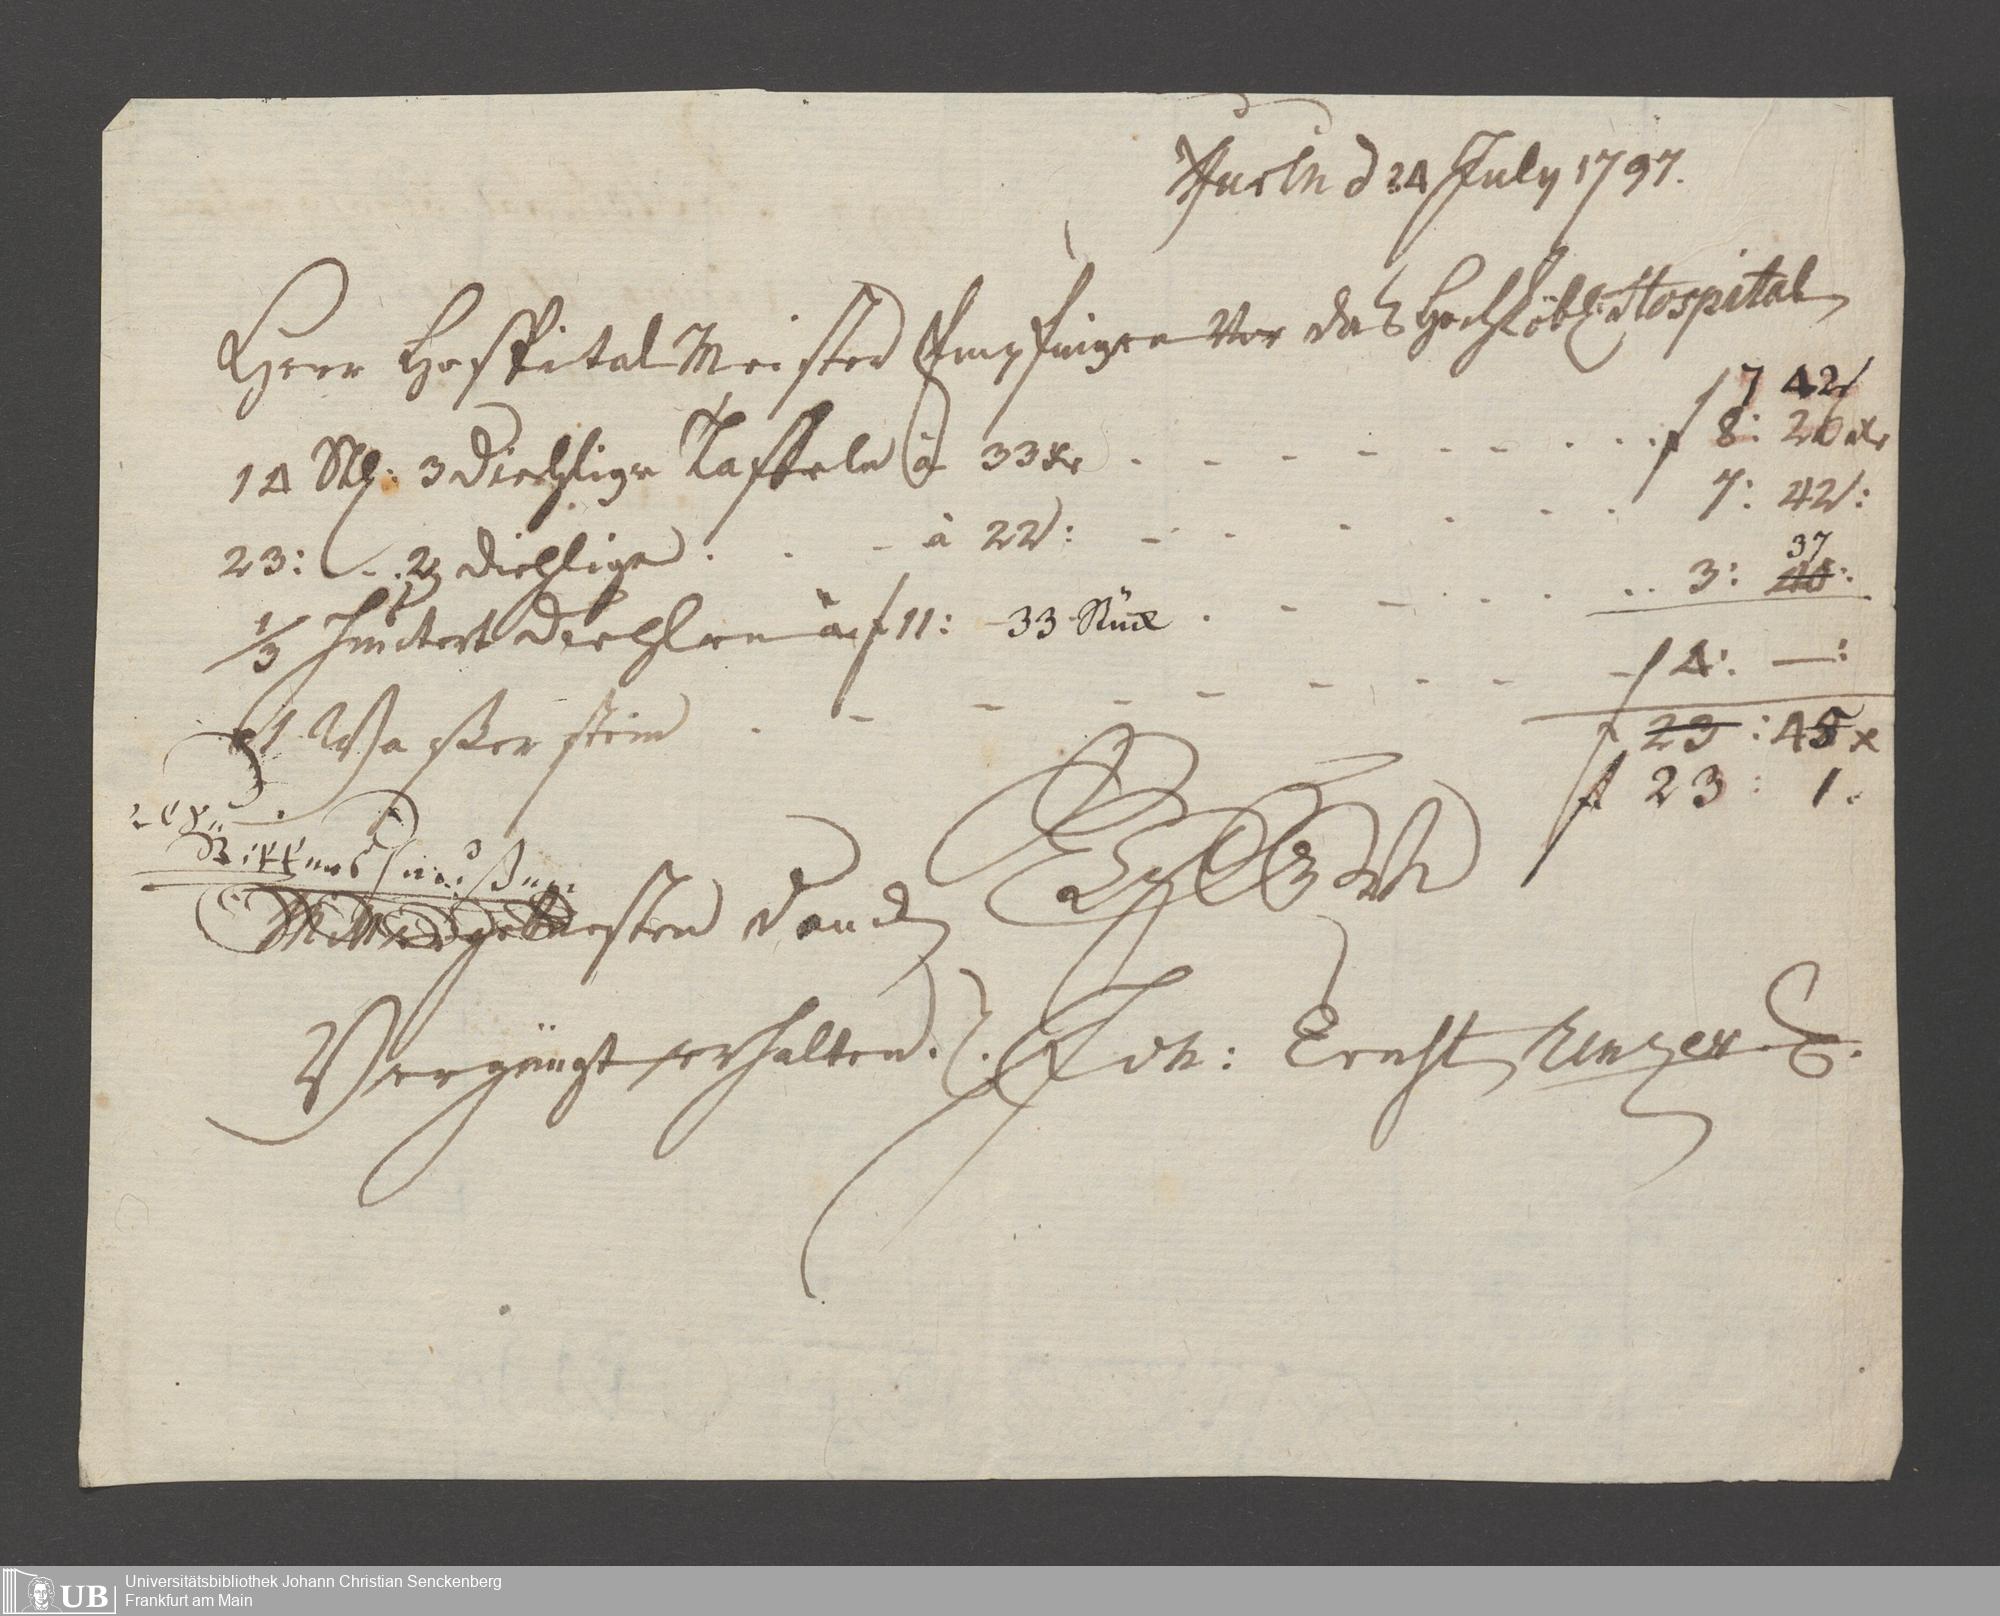 d 24 July 1797.
Herr Hospital Meister Empfingen Vor das Hochlöbl: Hospital
f 7 42
14 Stk: 3 Diehlige Taffeln à 33 xr . - - - - - . . . f 8: 26 xr
23: - . 2 Diehlige . . - à 22: - . - - - . 7: 42:
1/3 Hundert Diehlen à f 11: 33 Stück . - - . . . . 3: 40: 37
1 Wasserstein . - - - - - - - - f 4: —:
f 23 : 45 x
f 23 : 1.
Mit Danck
Vergnügt erhalten. Joh: Ernst
UB
Universitätsbibliothek Johann Christian Senckenberg
Frankfurt am Main